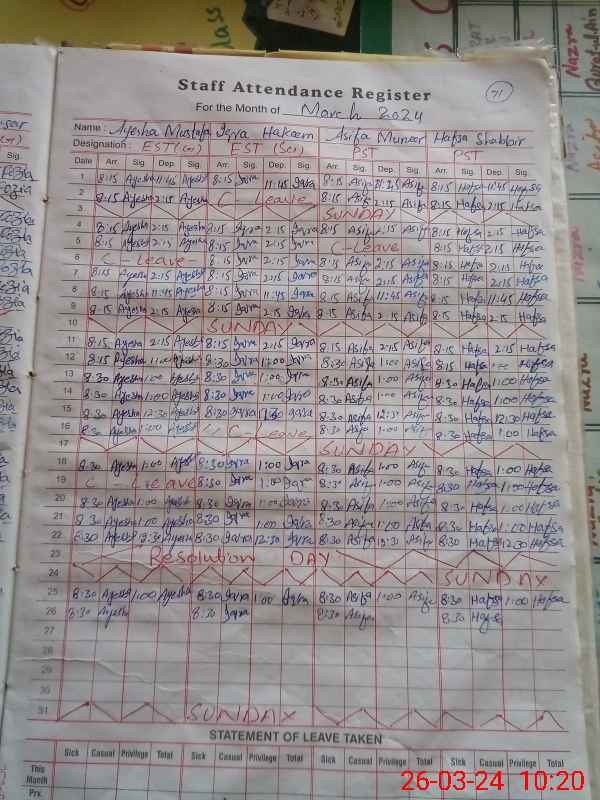 Staff Attendance Register
71
For the Month of March 2024
Name: Ayesha Mustafa Iqra Hakeem Asifa Muneer Hafsa Shabbir
Designation: EST(G) EST (Sci) PST PST
Date Arr. Sig. Dep. Sig. Arr. Sig. Dep. Sig. Arr. Sig. Dep. Sig. Arr. Sig. Dep. Sig.
1 8:15 Ayesha 11:45 Ayesha 8:15 Iqra 11:45 Iqra 8:15 Asifa 11:45 Asifa 8:15 Hafsa 11:45 Hafsa
2 8:15 Ayesha 2:15 Ayesha C - Leave 8:15 Asifa 2:15 Asifa 8:15 Hafsa 2:15 Hafsa
3 SUNDAY
4 8:15 Ayesha 2:15 Ayesha 8:15 Iqra 2:15 Iqra 8:15 Asifa 2:15 Asifa 8:15 Hafsa 2:15 Hafsa
5 8:15 Ayesha 2:15 Ayesha 8:15 Iqra 2:15 Iqra C-Leave 8:15 Hafsa 2:15 Hafsa
6 C - Leave - 8:15 Iqra 2:15 Iqra 8:15 Asifa 2:15 Asifa 8:15 Hafsa 2:15 Hafsa
7 8:15 Ayesha 2:15 Ayesha 8:15 Iqra 2:15 Iqra 8:15 Asifa 2:15 Asifa 8:15 Hafsa 2:15 Hafsa
8 8:15 Ayesha 11:45 Ayesha 8:15 Iqra 11:45 Iqra 8:15 Asifa 11:45 Asifa 8:15 Hafsa 11:45 Hafsa
9 8:15 Ayesha 2:15 Ayesha 8:15 Iqra 2:15 Iqra 8:15 Asifa 2:15 Asifa 8:15 Hafsa 2:15 Hafsa
10 SUNDAY
11 8:15 Ayesha 2:15 Ayesha 8:15 Iqra 2:15 Iqra 8:15 Asifa 2:15 Asifa 8:15 Hafsa 2:15 Hafsa
12 8:15 Ayesha 1:00 Ayesha 8:30 Iqra 1:00 Iqra 8:30 Asifa 1:00 Asifa 8:15 Hafsa 1:00 Hafsa
13 8:30 Ayesha 1:00 Ayesha 8:30 Iqra 1:00 Iqra 8:30 Asifa 1:00 Asifa 8:30 Hafsa 1:00 Hafsa
14 8:30 Ayesha 1:00 Ayesha 8:30 Iqra 1:00 Iqra 8:30 Asifa 1:00 Asifa 8:30 Hafsa 1:00 Hafsa
15 8:30 Ayesha 12:30 Ayesha 8:30 Iqra 12:30 Iqra 8:30 Asifa 12:30 Asifa 8:30 Hafsa 12:30 Hafsa
16 8:30 Ayesha 1:00 Ayesha C - Leave 8:30 Asifa 1:00 Asifa 8:30 Hafsa 1:00 Hafsa
17 SUNDAY
18 8:30 Ayesha 1:00 Ayesha 8:30 Iqra 1:00 Iqra 8:30 Asifa 1:00 Asifa 8:30 Hafsa 1:00 Hafsa
19 C - Leave 8:30 Iqra 1:00 Iqra 8:30 Asifa 1:00 Asifa 8:30 Hafsa 1:00 Hafsa
20 8:30 Ayesha 1:00 Ayesha 8:30 Iqra 1:00 Iqra 8:30 Asifa 1:00 Asifa 8:30 Hafsa 1:00 Hafsa
21 8:30 Ayesha 1:00 Ayesha 8:30 Iqra 1:00 Iqra 8:30 Asifa 1:00 Asifa 8:30 Hafsa 1:00 Hafsa
22 8:30 Ayesha 12:30 Ayesha 8:30 Iqra 12:30 Iqra 8:30 Asifa 12:30 Asifa 8:30 Hafsa 12:30 Hafsa
23 Resolution DAY
24 SUNDAY
25 8:30 Ayesha 1:00 Ayesha 8:30 Iqra 1:00 Iqra 8:30 Asifa 1:00 Asifa 8:30 Hafsa 1:00 Hafsa
26 8:30 Ayesha 8:30 Iqra 8:30 Asifa 8:30 Hafsa
27
28
29
30
31 SUNDAY
STATEMENT OF LEAVE TAKEN
Sick Casual Privilege Total Sick Casual Privilege Total Sick Casual Privilege Total Sick Casual Privilege Total
This Month
Prv.
26-03-24 10:20